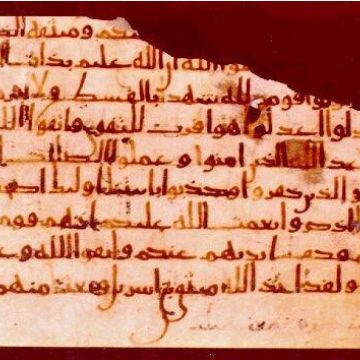 كم و ميثقه الذ
وا الله ان الله عليم بذات ا
ونوا قومين لله شهدا بالقسط ولا يجر
دلوا اعدلوا هو اقرب للتقوى واتقوا الله
عد الله الذين امنوا و عملوا الصلحت
و الذين كفروا وكذبوا بايتنا اوليك اصح
اذكروا نعمت الله عليكم اذ هم قوم
فكف ايديهم عنكم واتقوا الله و ع
و لقد اخذ الله ميثق بني اسريل و بعثنا منهم